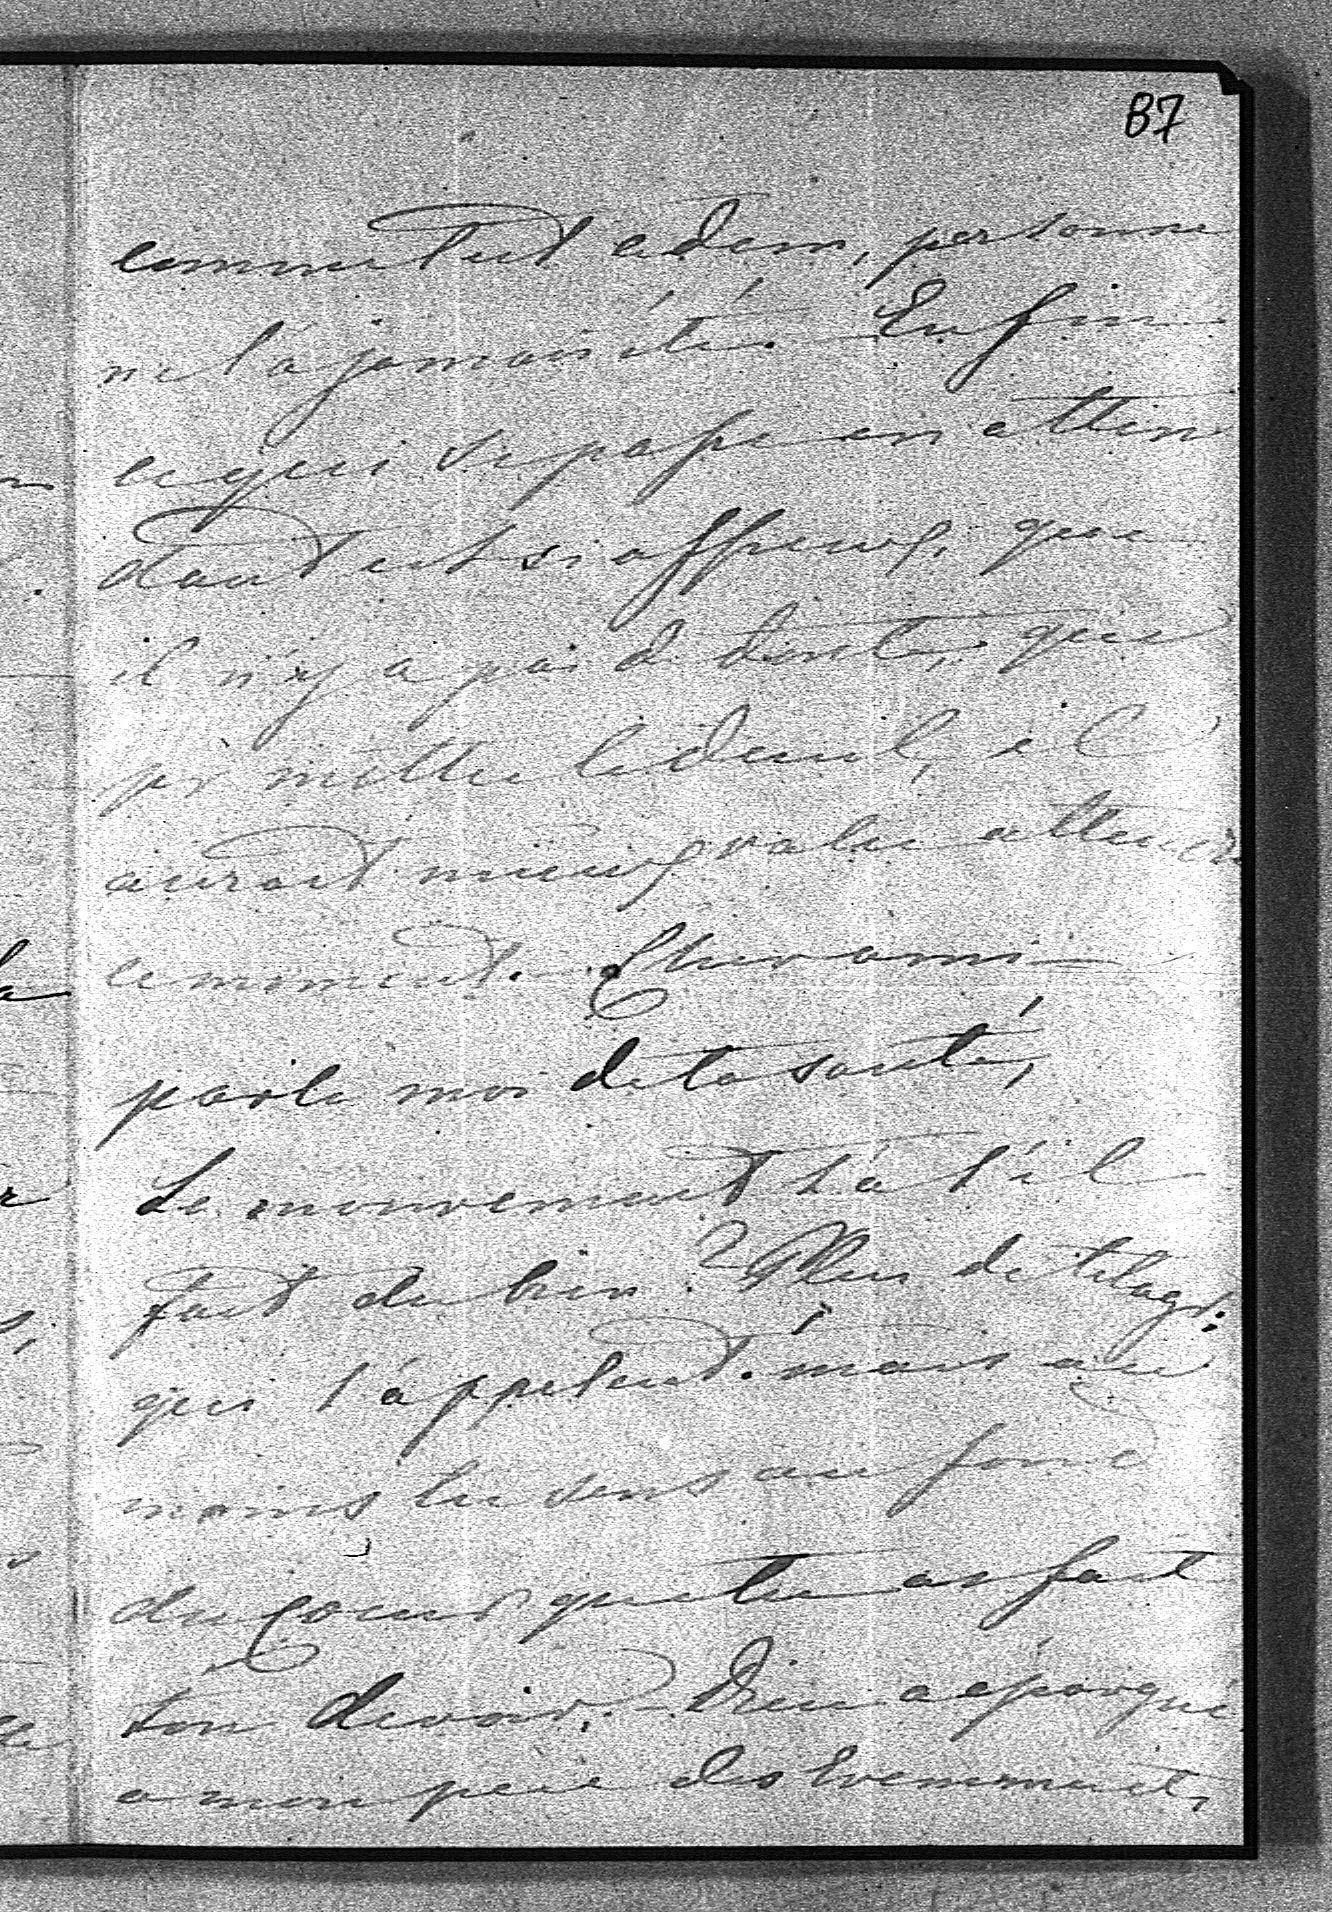 87
comme tut edem, personne
ne l'a jamais été. Enfin
ce qui se passe en atten
dant est si affreux, que
il n'y a pas de doute, que
pr mettre le deuil, il
aurait mieux valu attendre
ce moment. Cher ami
parle moi de ta santé,
Le mouvement t'a t'il
fait du bien? Plus de telegr:
qui t'appelent. mais au
moins tu sens au fond
du Coeur que tu as fait
ton devoir. Dieu a épargné
a mon père des Evenements